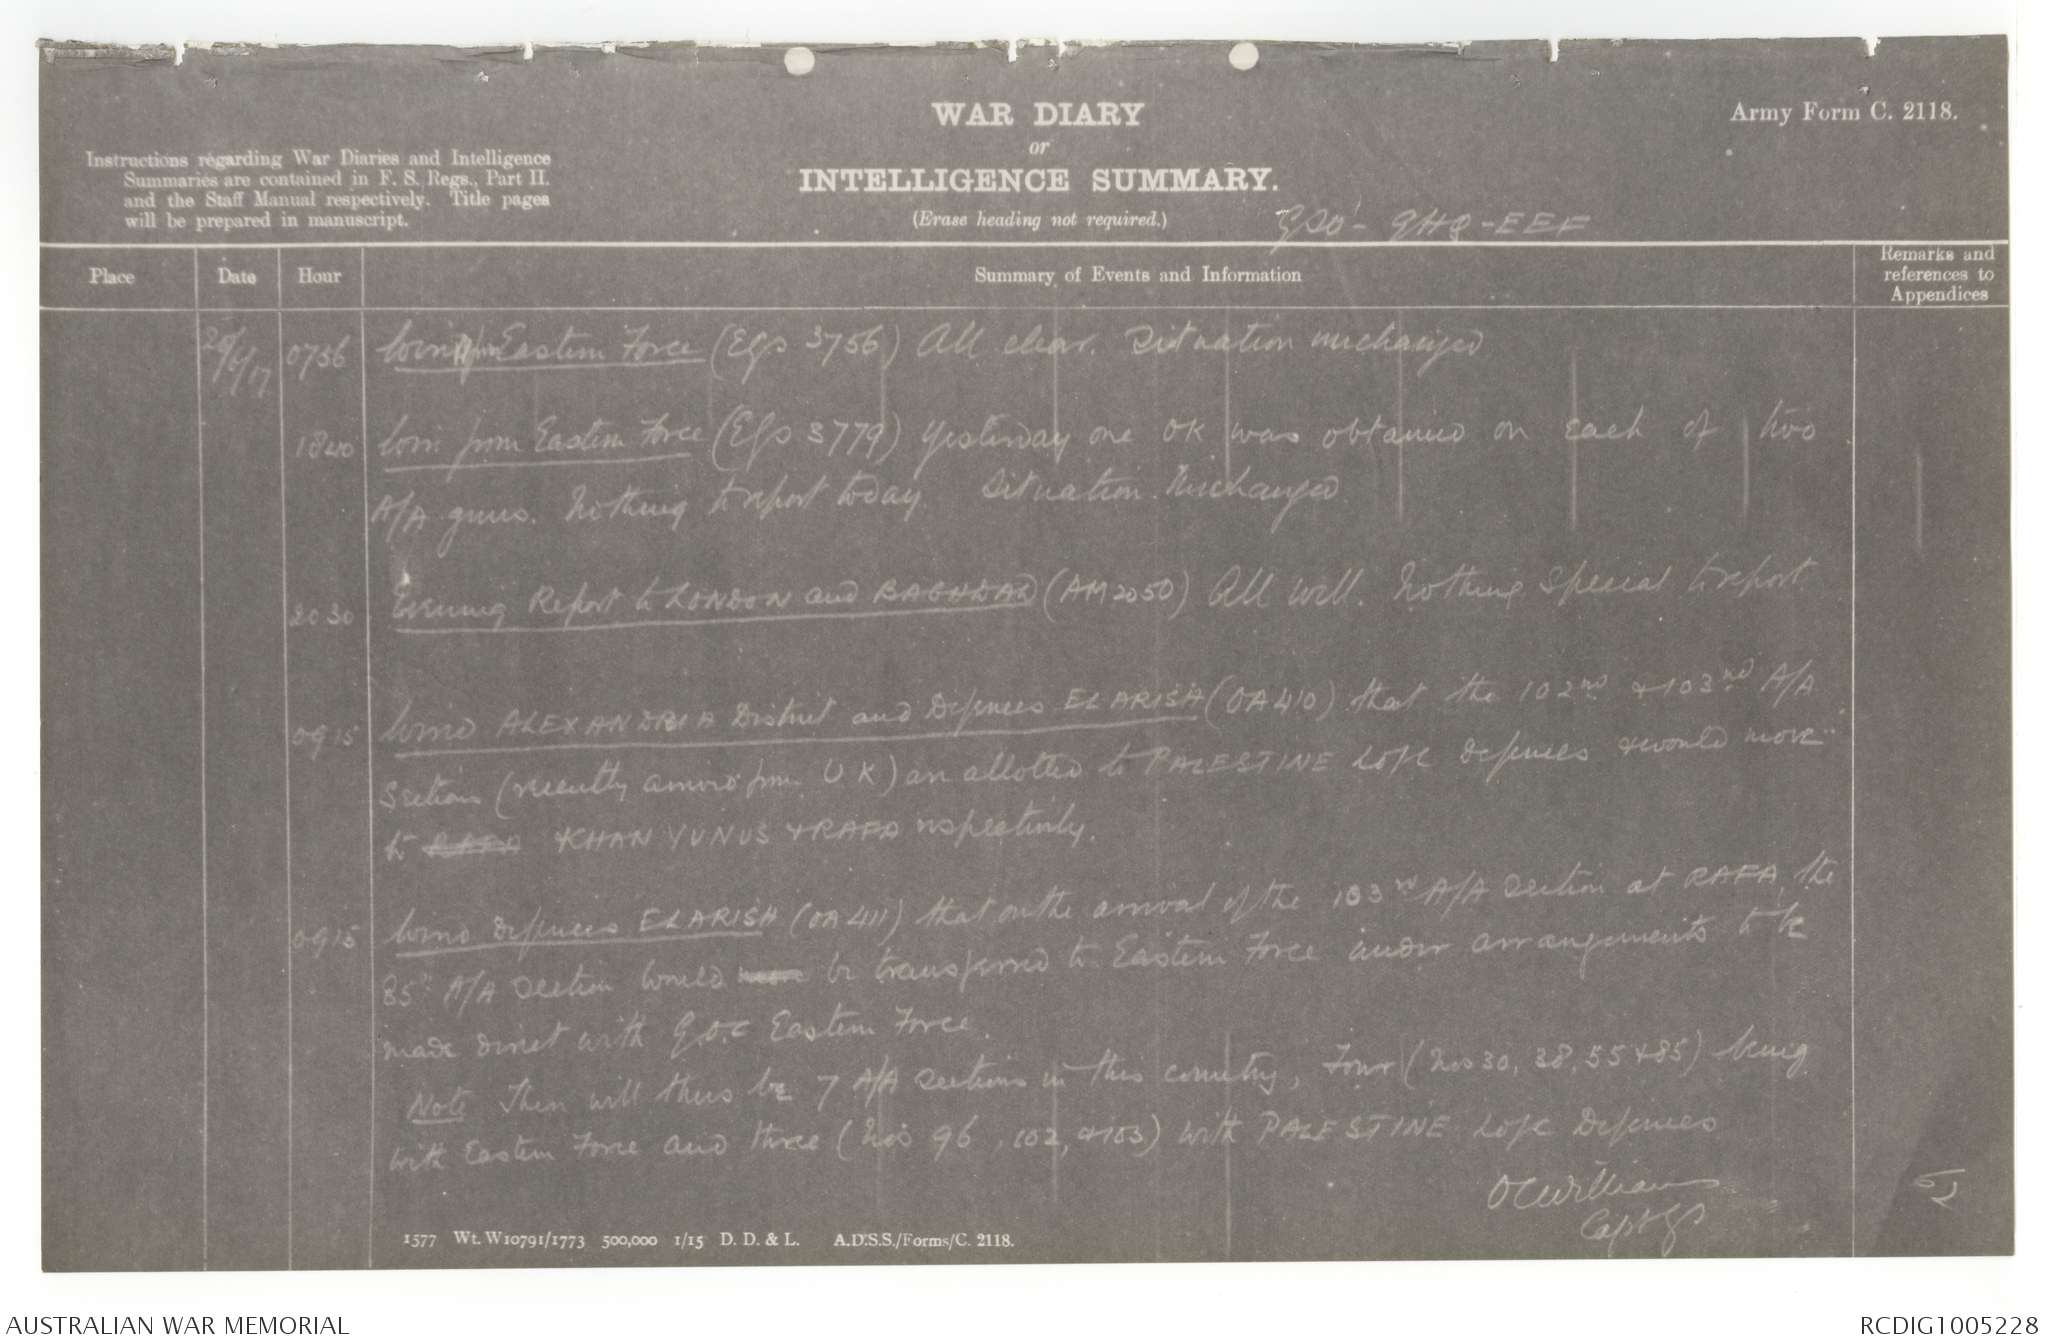 WAR DIARY
or
INTELLIGENCE SUMMARY.
(Erase heading not required.)
Army Form C. 2118.
Instructions regarding War Diaries and Intelligence
Summaries are contained in F. S. Regs., Part II.
and the Staff Manual respectively. Title pages
will be prepared in manuscript.
GSO - GHQ - EEF
Place
Date
Hour
Summary of Events and Information
Remarks and
references to
Appendices
0756 Eastern Force (EGs 3756) All clear. Situation unchanged
1840 from Eastern Force (EGs 3779) Yesterday one OK was obtained on each of two
A/A guns. Nothing to report today. Situation Unchanged
2030 Evening Report to LONDON and BAGHDAD (AM 2050) All well. Nothing special to report.
0915 Wired ALEXANDRIA District and Defences EL ARISH (OA 410) that the 102nd & 103rd A/A
Sections (recently arrived from UK) are allotted to PALESTINE LofC defences & would move
to KHAN YUNUS & RAFA respectively.
0915 Wired Defences EL ARISH (OA 411) that on the arrival of the 103rd A/A section at RAFA, the
85th A/A section would be transferred to Eastern Force under arrangements to be
made direct with G.O.C Eastern Force.
Note There will thus be 7 A/A sections in this country, Four (Nos 30, 38, 55 & 85) being
with Eastern Force and three (Nos 96, 102, & 103) with PALESTINE LofC Defences
OC Williams
Capt GS
1577 Wt. W10791/1773 500,000 1/15 D. D. & L. A.D.S.S./Forms/C. 2118.
AUSTRALIAN WAR MEMORIAL
RCDIG1005228